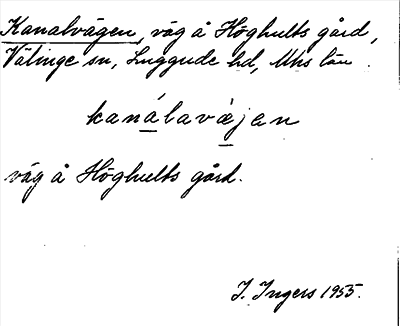 Kanalvägen, väg å Höghults gård,
Välinge sn, Luggude hd, Mhs län.
kanálavæjen
väg å Höghults gård.
I. Ingers 1955.